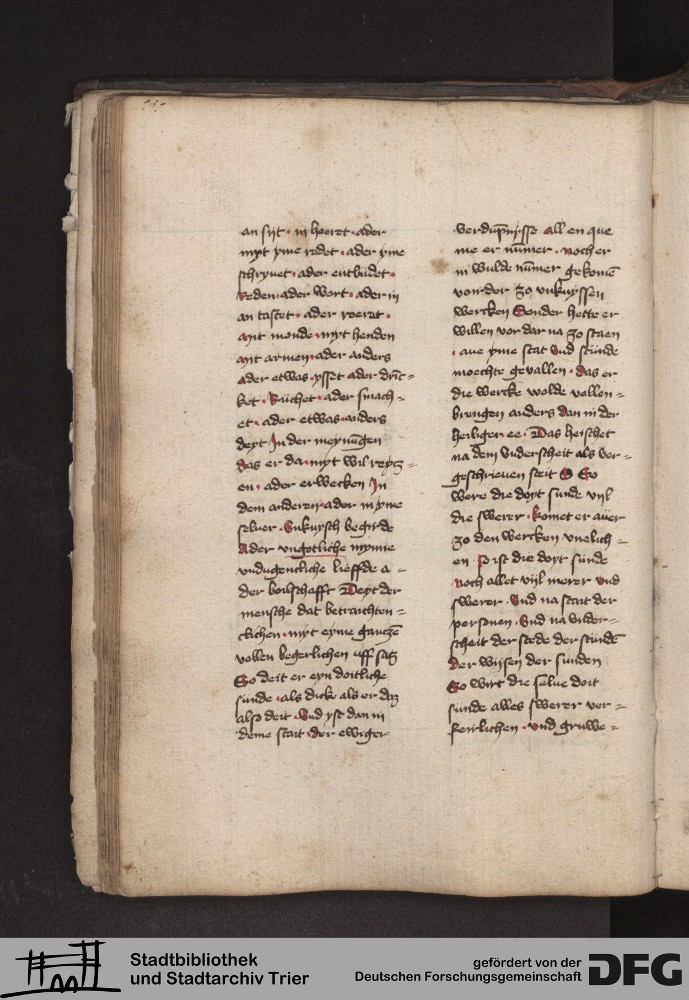 an siit · in hoeret · ader
myt yme redet · ader yme
schryuet · ader entbudet ·
Reden · ader wort · ader in
an tastet · ader roeret ·
Myt monde · myt henden
Myt armen · ader anders
ader etwas · ysset · ader drīc-
ket · Rüchet · ader smach-
et · ader etwas · anders
deyt In der meynūgen
das er da · myt wil reytz-
en · ader erwecken In
dem anderen · ader in yme
seluer · Vnkuysch begirde
Ader vngotliche mynne
vndugentliche lieffde a-
der boilschafft Deyt der
mensche dat betrachten-
clichen · myt eyme gantzē
vollen begerlichen uff satz
So deit er eyn doitliche
sunde · als dicke als er daz
also deit · Vnd yst dan in
deme stait · der ewiger
verdūpnysse all en que
me er nūmer · noch er
in wulde nūmer gekomē
von der zo vnkuyssen
wercken Sonder hette er
willen vor dar na zo staen
· aue yme stat vnd stunde
moechte gevallen · das er
die wercke wolde vollen-
brengen anders dan in der
heiliger ee · Das heischet
na dem vnderscheit als vor-
geschrieuen steit So
were die doyt sunde vyl
die swerer · komet er auer
zo den wercken vnelich-
en · so ist die doyt sunde
noch allet vyl merer vnd
swerer · Vnd na stait der
personen · Vnd na vnder-
scheit der stede der stundē
der wysen der sunden
So wirt die selue doit
sunde alles swerer ver-
feirlichen · vnd gruwe-
Stadtbibliothek
und Stadtarchiv Trier
gefördert von der
Deutschen Forschungsgemeinschaft
DFG